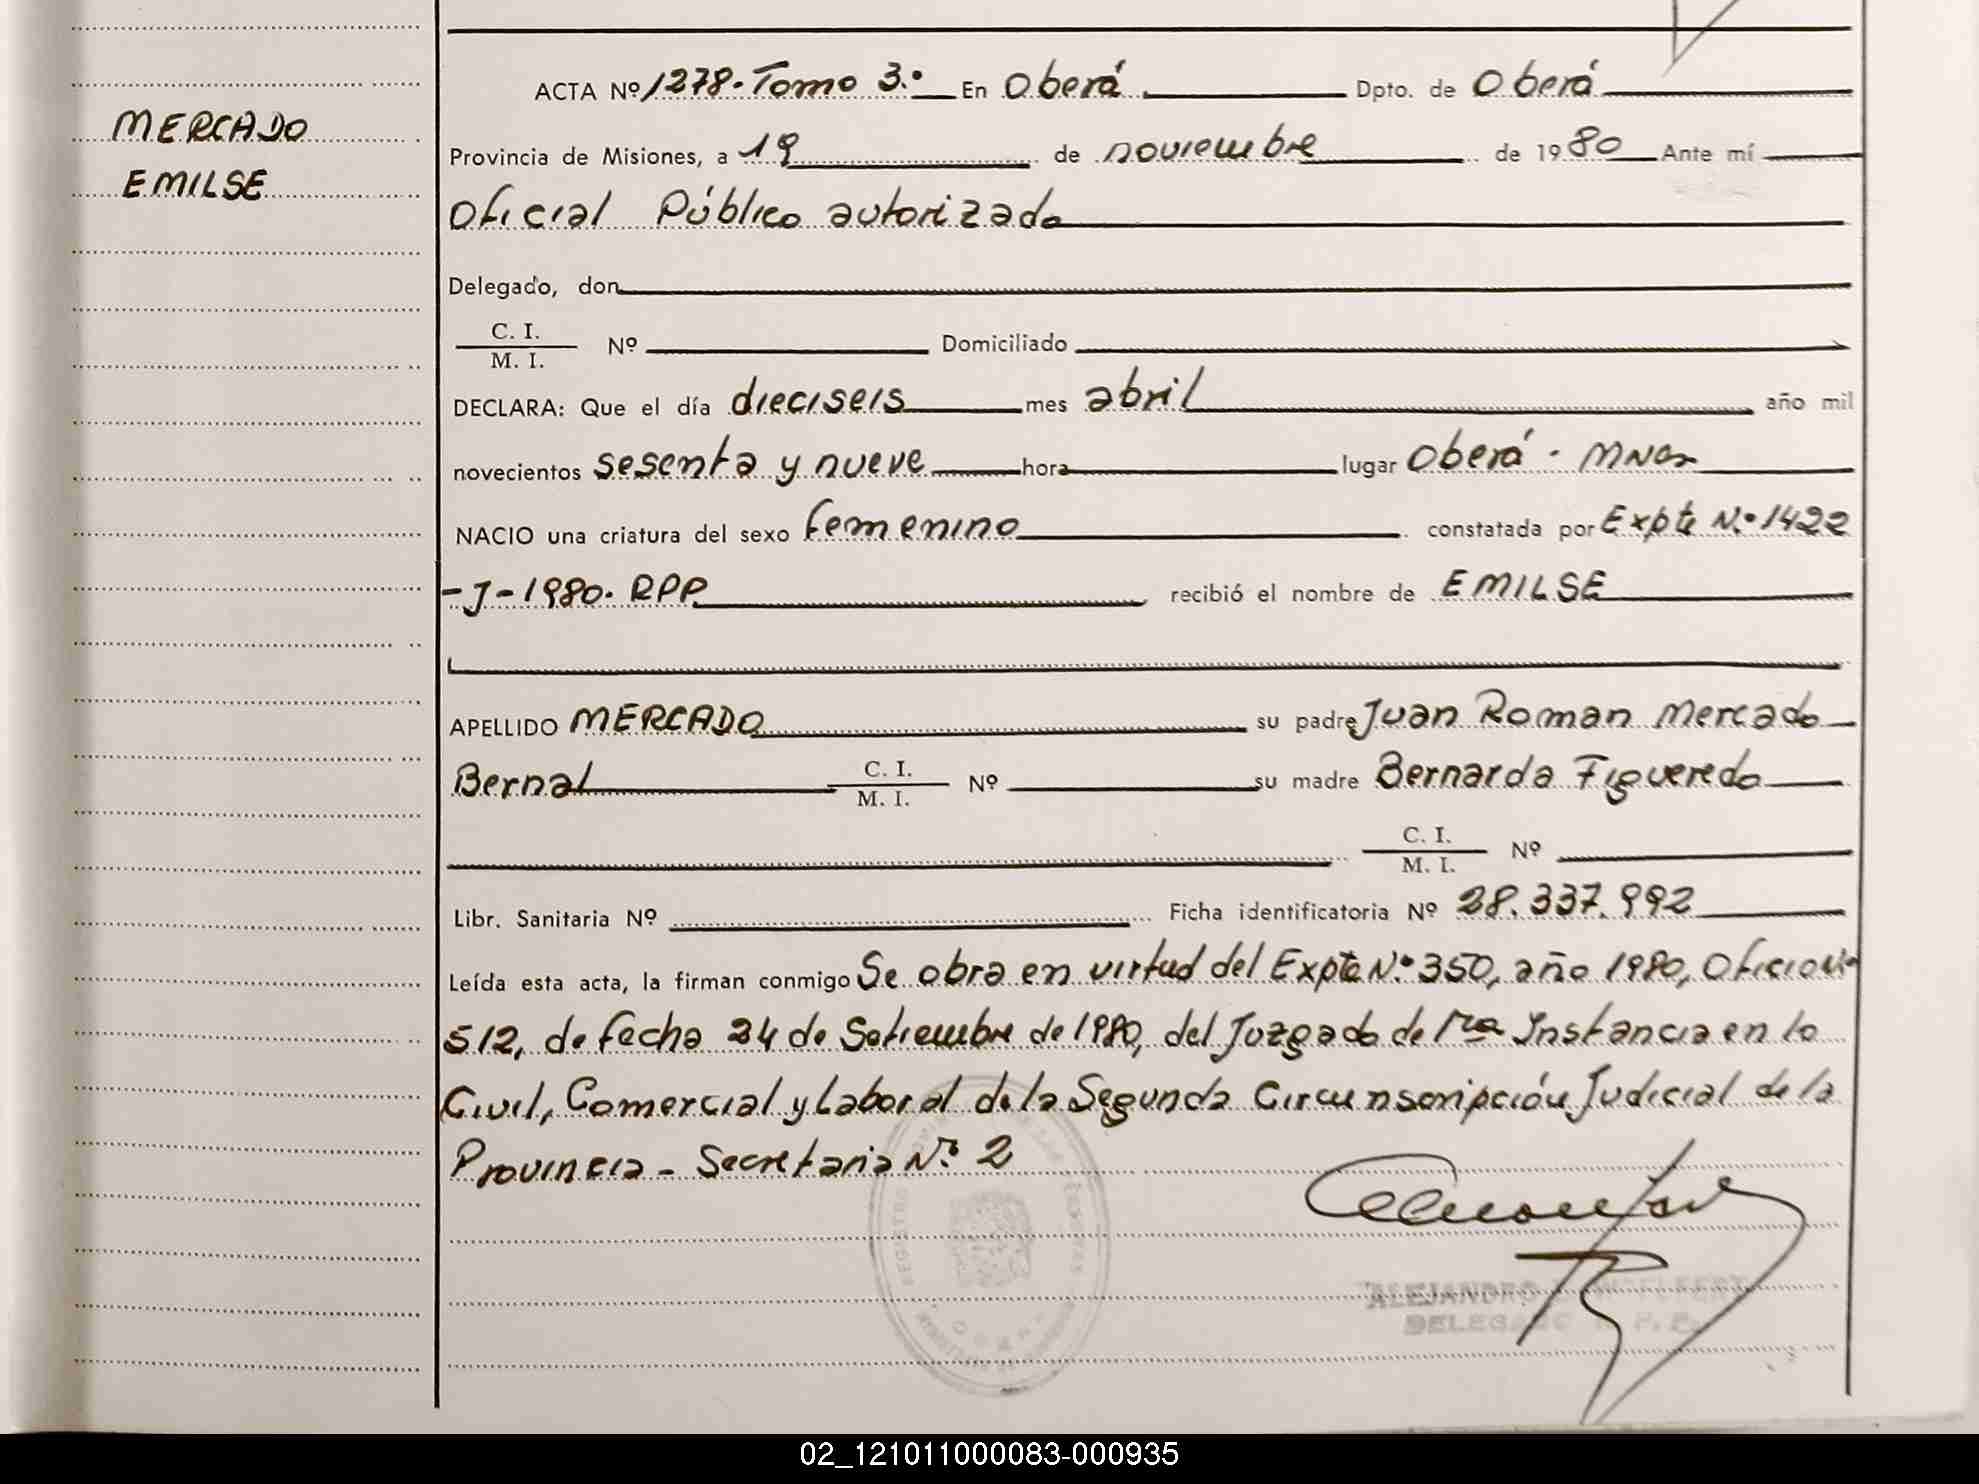 MERCADO
EMILSE
ACTA Nº 1278. Tomo 3.º En Oberá Dpto. de Oberá
Provincia de Misiones, a 19 de noviembre de 1980 Ante mí
Oficial Público autorizado
Delegado, don
C. I.
M. I. Nº Domiciliado
DECLARA: Que el día dieciseis mes abril año mil
novecientos sesenta y nueve hora lugar Oberá - Mnes
NACIO una criatura del sexo femenino constatada por Expte N.º 1422
-J-1980. RPP recibió el nombre de EMILSE
APELLIDO MERCADO su padre Juan Roman Mercado
Bernal C. I. M. I. Nº su madre Bernarda Figueredo
C. I.
M. I. Nº
Libr. Sanitaria Nº Ficha identificatoria Nº 28.337.992
Leída esta acta, la firman conmigo Se obra en virtud del Expte N.º 350, año 1980, Oficio N.º
512, de fecha 24 de Setiembre de 1980, del Juzgado de 1ra Instancia en lo
Civil, Comercial y Laboral de la Segunda Circunscripción Judicial de la
Provincia - Secretaria N.º 2
ALEJANDRO
DELEGADO R. P. P.
02_121011000083-000935